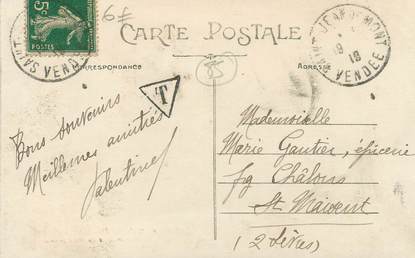 5c
POSTES
6F
CARTE POSTALE
CORRESPONDANCE
ADRESSE
SAINT JEAN DE MONT
VENDÉE
85
T
Bons souvenirs
Meilleures amitiés
Valentine
Mademoiselle
Marie Gautier, épicerie
fg Châlons
St Maixent
(2 Sèvres)